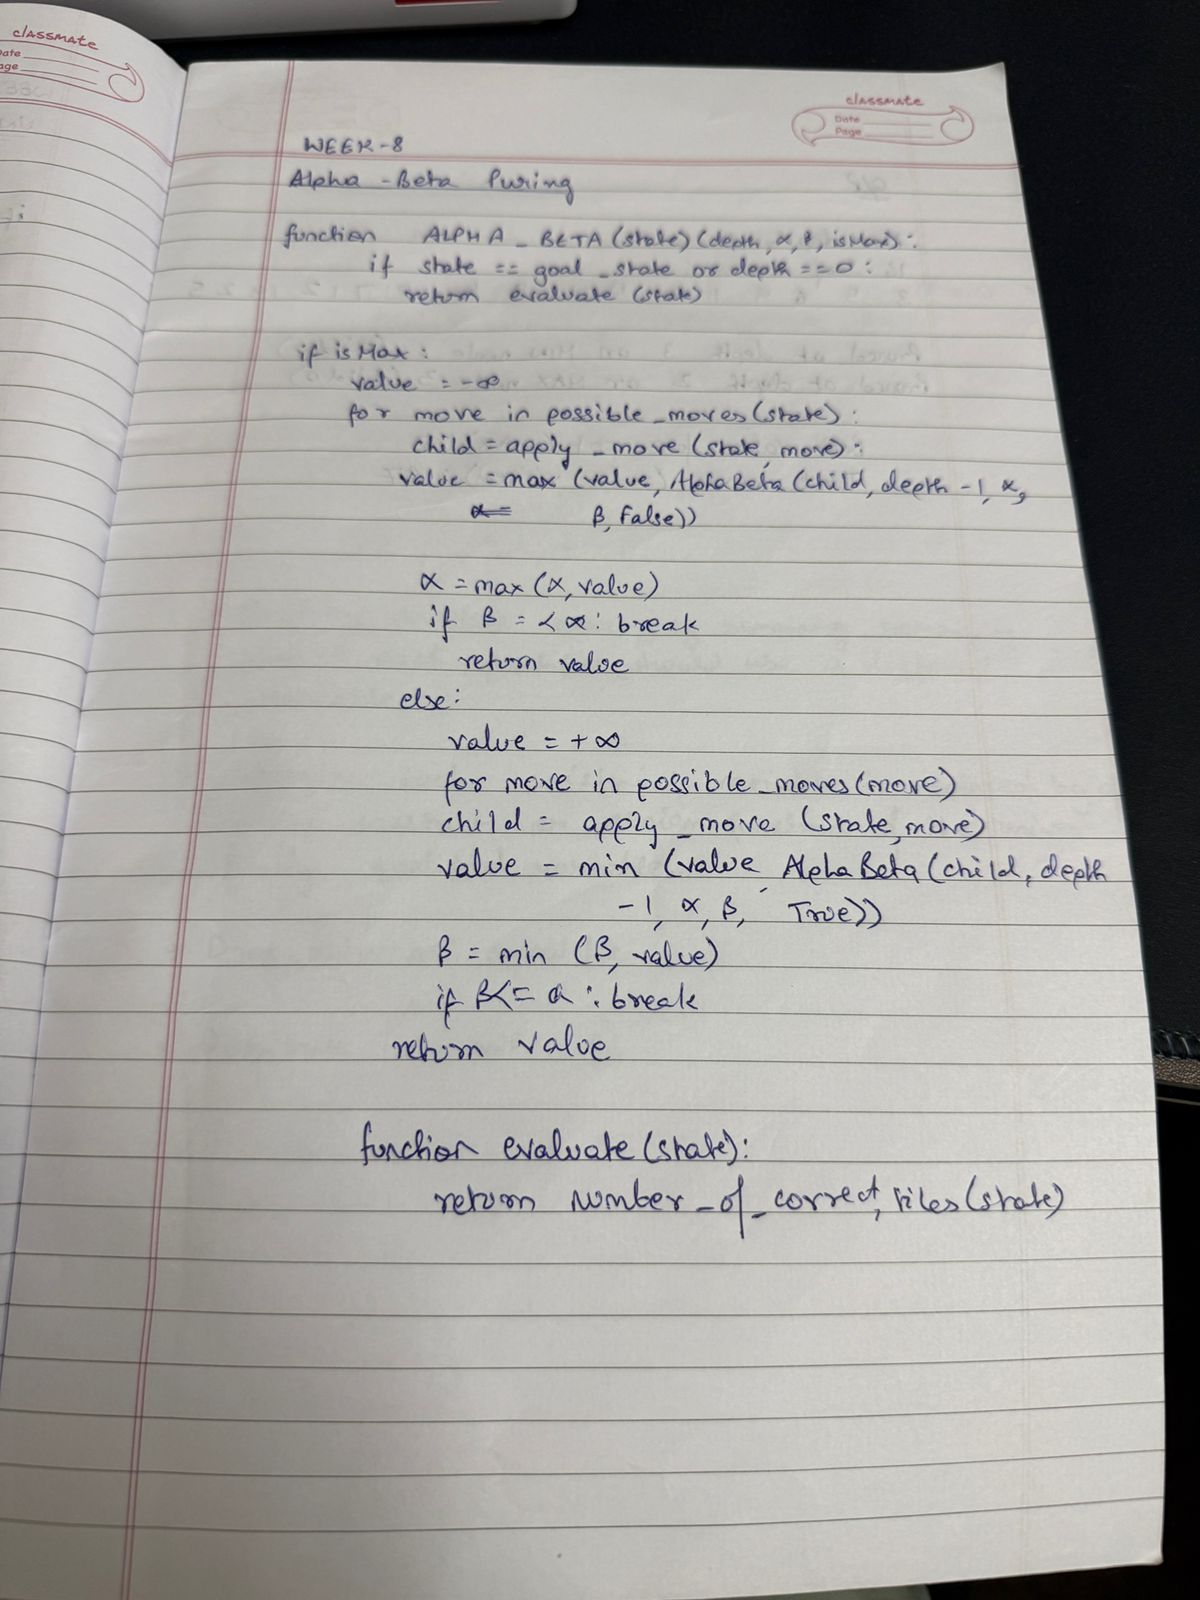 classmate
Date
Page
classmate
Date
Page
WEEK-8
Alpha-Beta Puring
function ALPHA_BETA (state) (depth, α, β, isMax):
if state == goal_state or depth == 0:
return evaluate (state)
if isMax:
value = -∞
for move in possible_moves(state):
child = apply_move (state, move):
value = max (value, AlphaBeta (child, depth -1, α,
β, False))
α = max (α, value)
if β = < α: break
return value
else:
value = +∞
for move in possible_moves(move)
child = apply_move (state, move)
value = min (value, AlphaBeta (child, depth
-1, α, β, True))
β = min (β, value)
if β <= α : break
return value
function evaluate (state):
return number_of_correct, tiles (state)